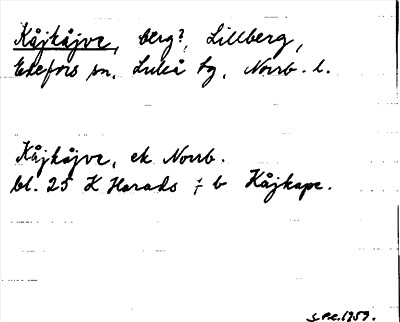 Kåjkåjve, berg?, Lillberg,
Edefors sn, Luleå tg, Norrb. l.
Kåjkåjve, ek Norrb.
bl. 25 K Harads f b Kåjkape.
1959.